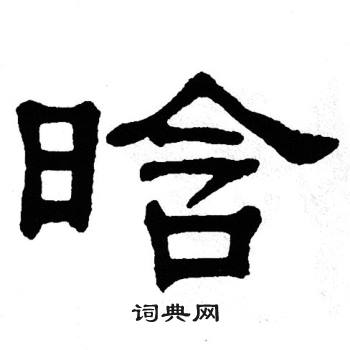 晗
词典网